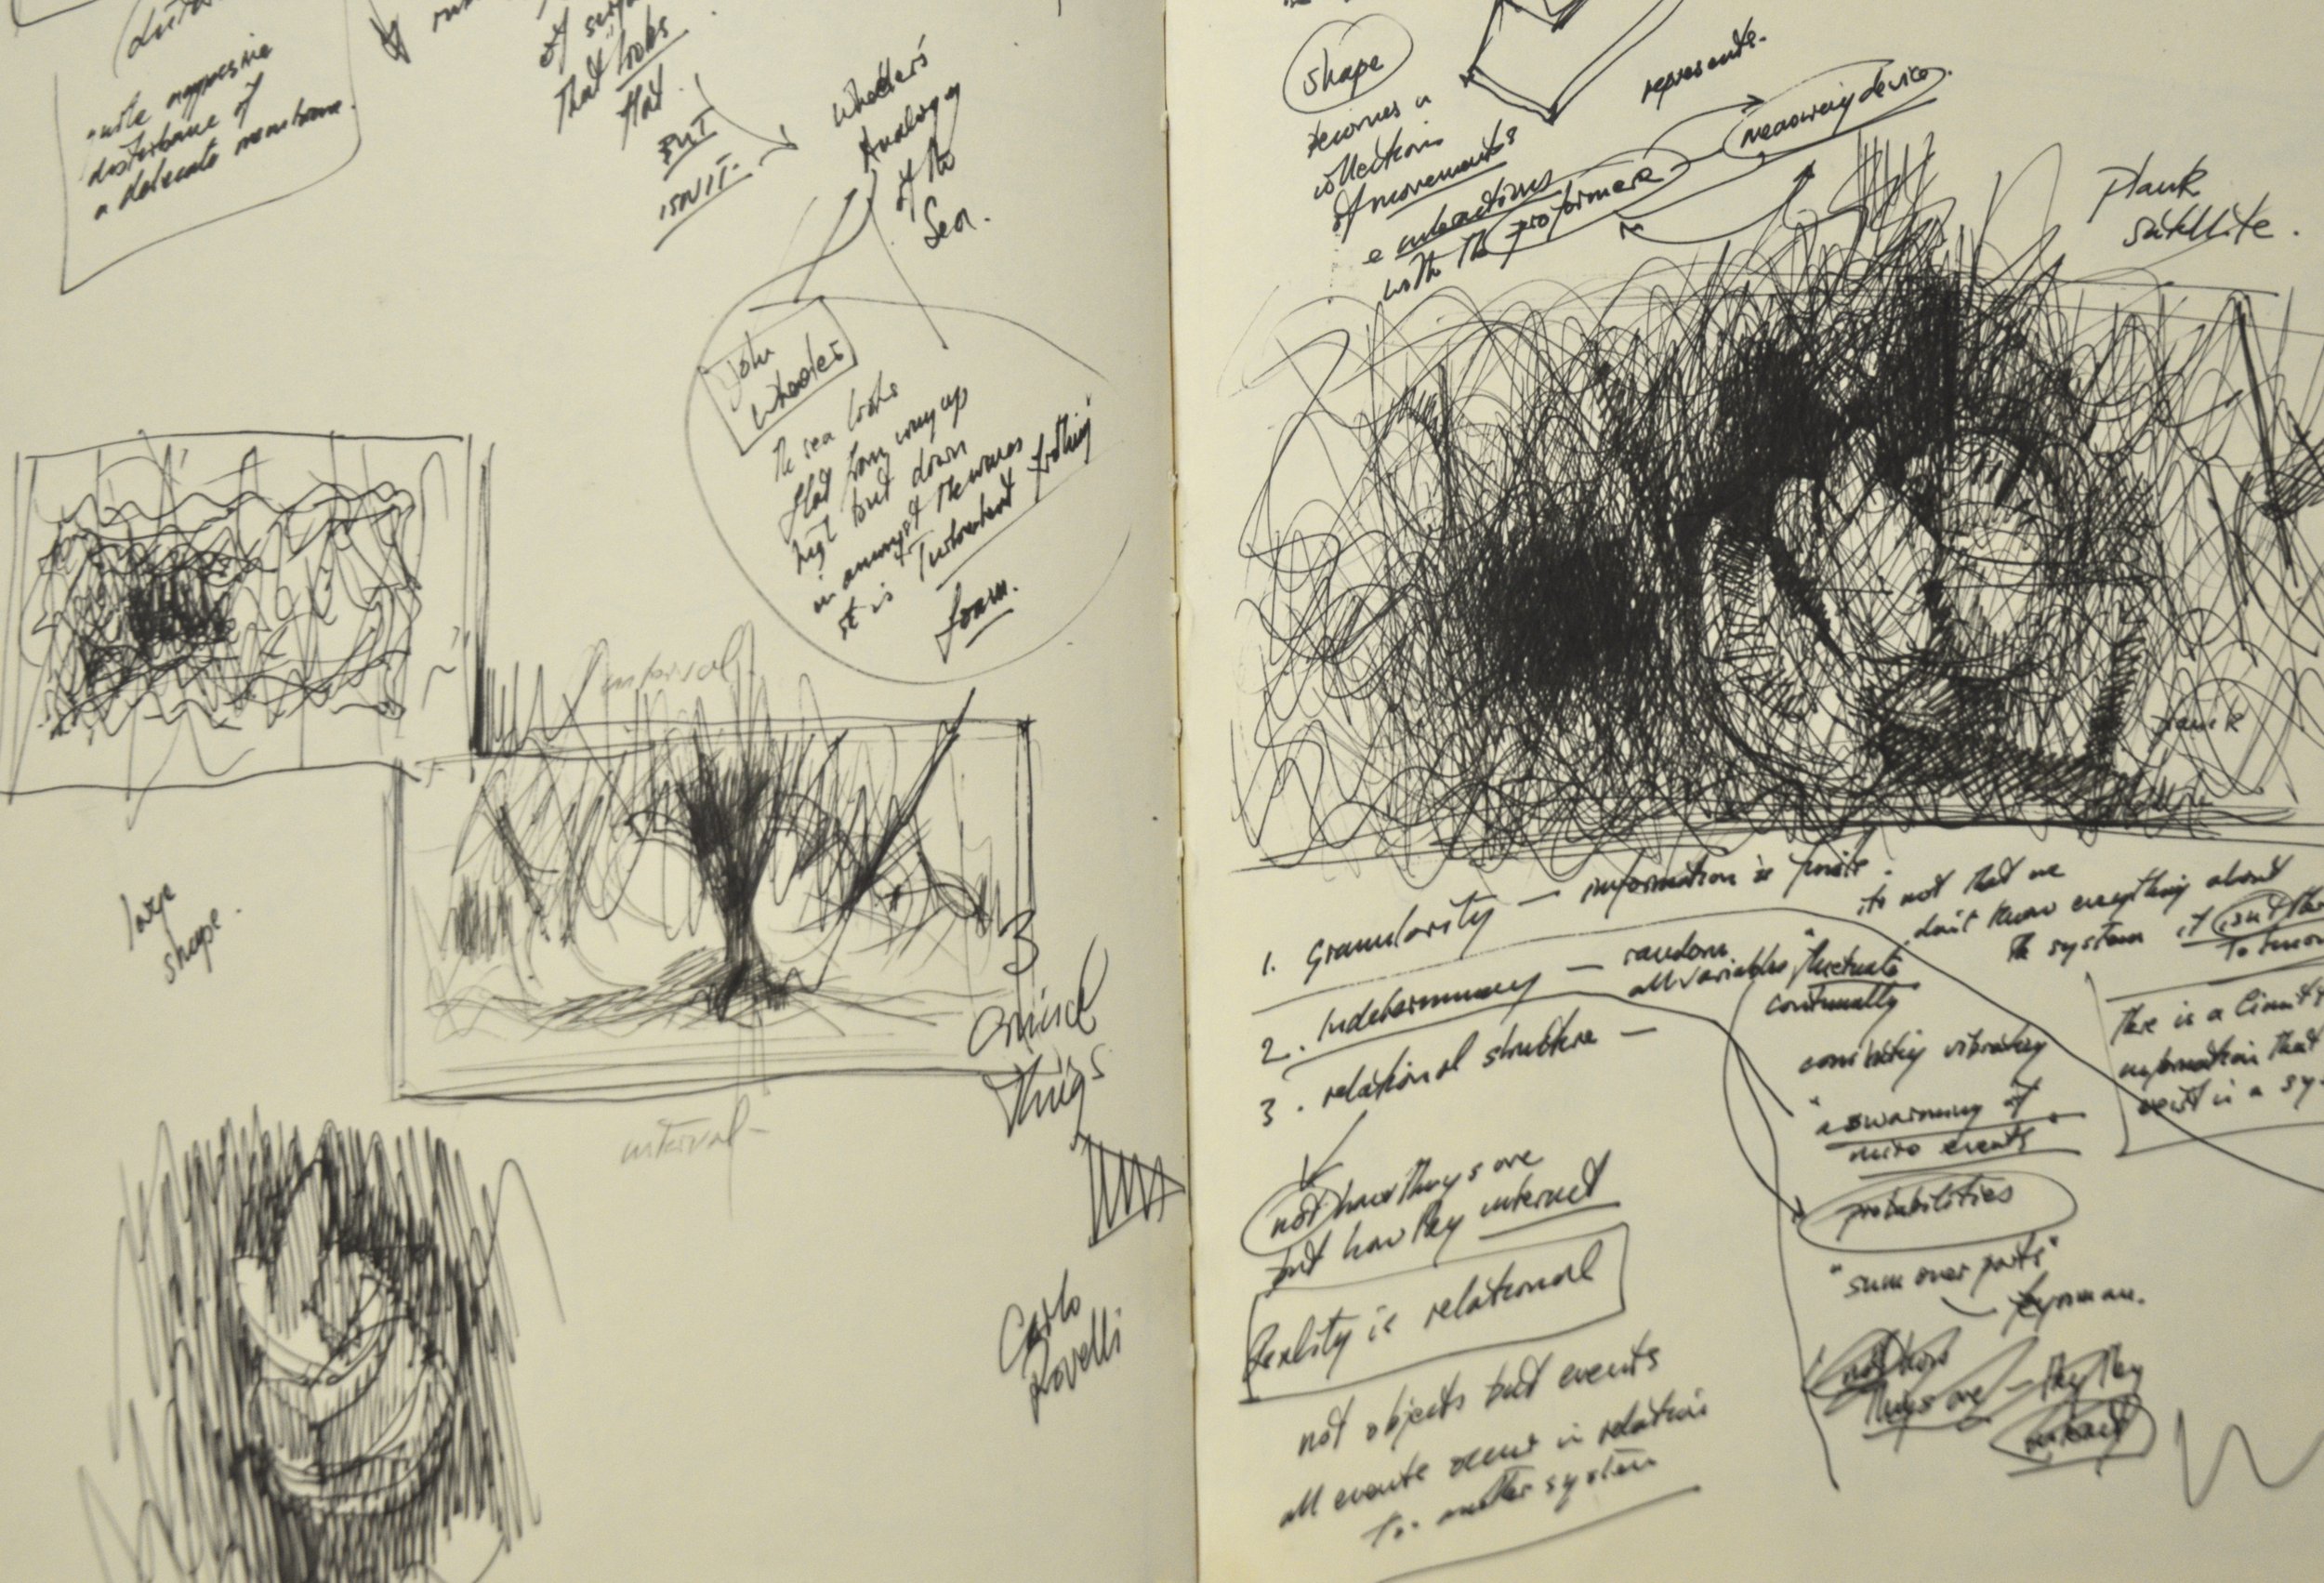 quite aggressive
disturbance of
a delicate membrane.
of surface
That looks
flat.
BUT
ISN'T.
Wheeler's
Analogy
of the
Sea.
John
Wheeler
The sea looks
flat from way up
high but down
in amongst the waves
it is turbulent frothing
foam.
interval
large
shape.
interval
3
Things
Carlo
Rovelli
shape
becomes a
collection
of movements
e interactions
with the
represents.
measuring device.
Plank
satellite.
Planck
1. Granularity — information is finite.
its not that we
don't know everything about
the system it isn't
to know
2. Indeterminacy — random
all variables "fluctuate
continually
3. relational structure —
There is a limit
information that
exist in a
constantly vibrating
"a swarming of
micro events"
probabilities
"sum over paths"
not how things are
but how they interact
Reality is relational
not objects but events
all events occur in relation
to another system
not how
things are — they
interact